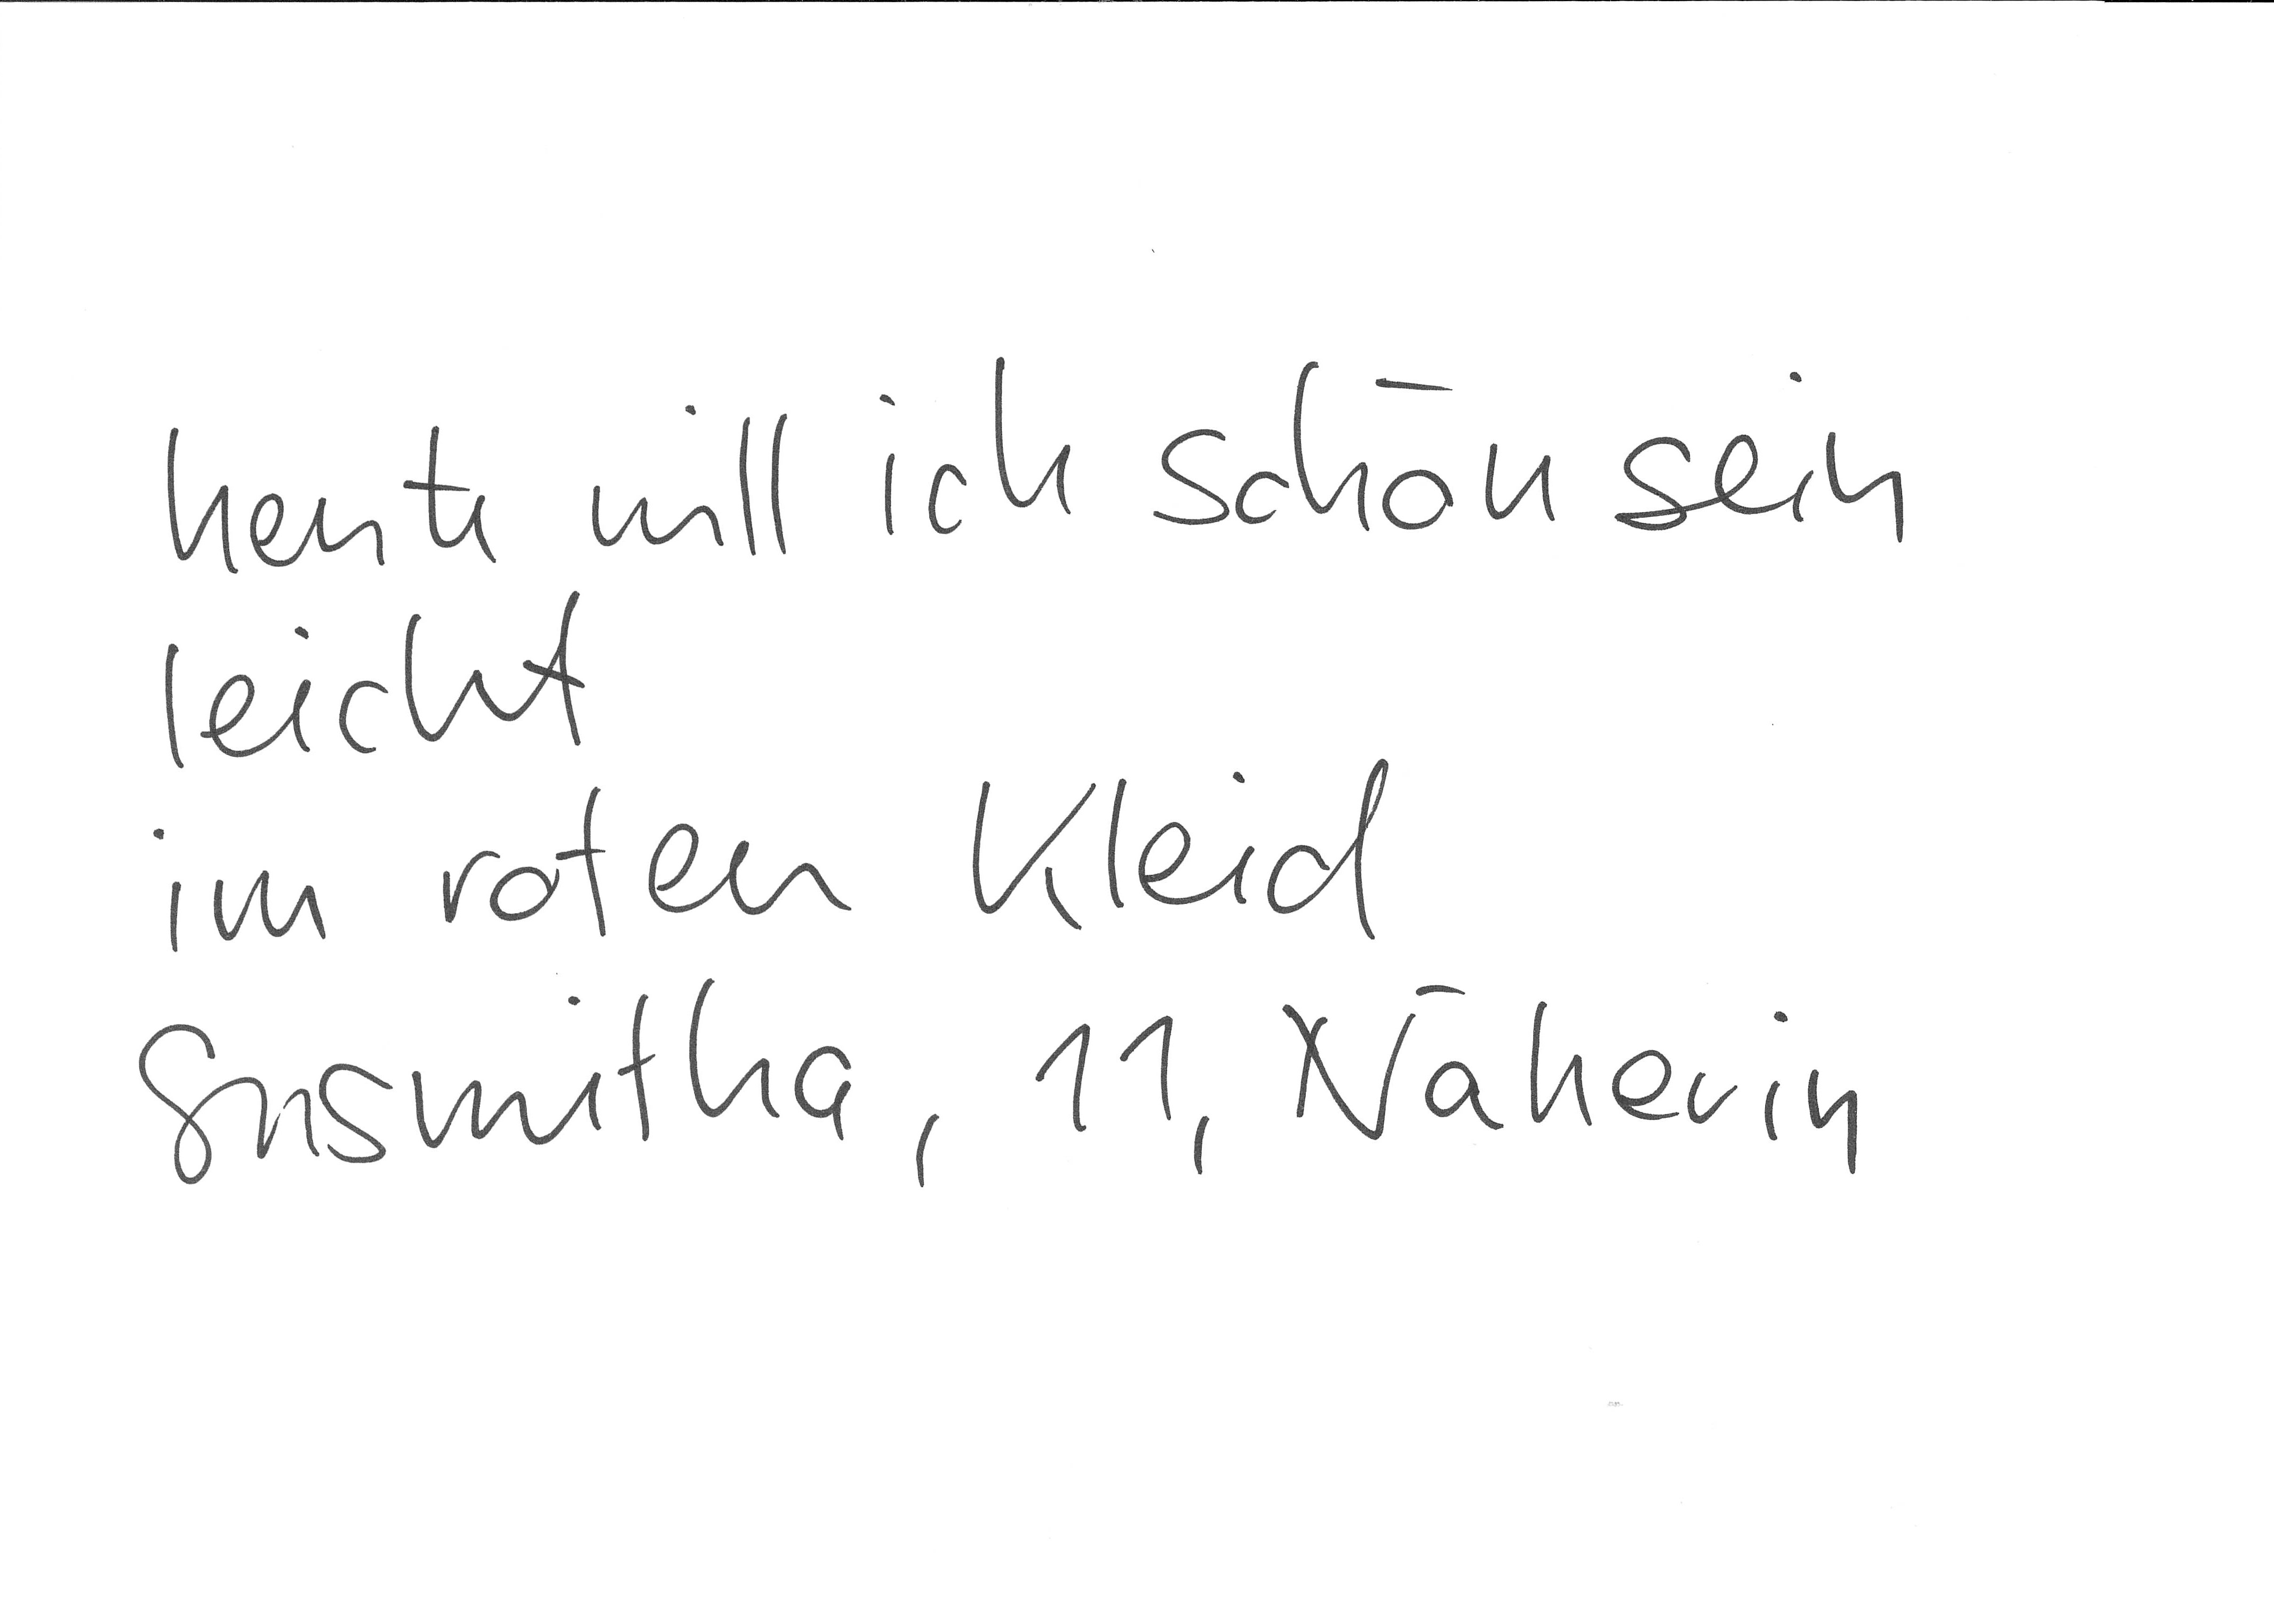 heute will ich schön sein
leicht
im roten Kleid
Susmitha, 11, Näherin